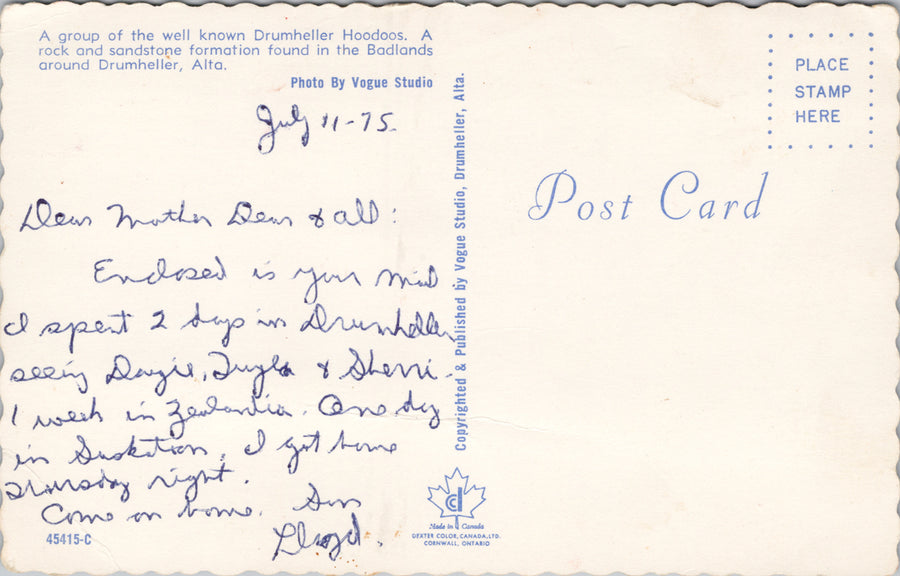 A group of the well known Drumheller Hoodoos. A
rock and sandstone formation found in the Badlands
around Drumheller, Alta.
Photo By Vogue Studio
July 11-75.
Dear Mother Dear & all:
Enclosed is your mail
I spent 2 days in Drumheller
seeing & Sherri.
1 week in Zealandia. One day
in Saskatoon, I got home
Thursday night.
Come on home. Son
Lloyd.
45415-C
Copyrighted & Published by Vogue Studio, Drumheller, Alta.
PLACE
STAMP
HERE
Post Card
Made in Canada
DEXTER COLOR, CANADA, LTD.
CORNWALL, ONTARIO